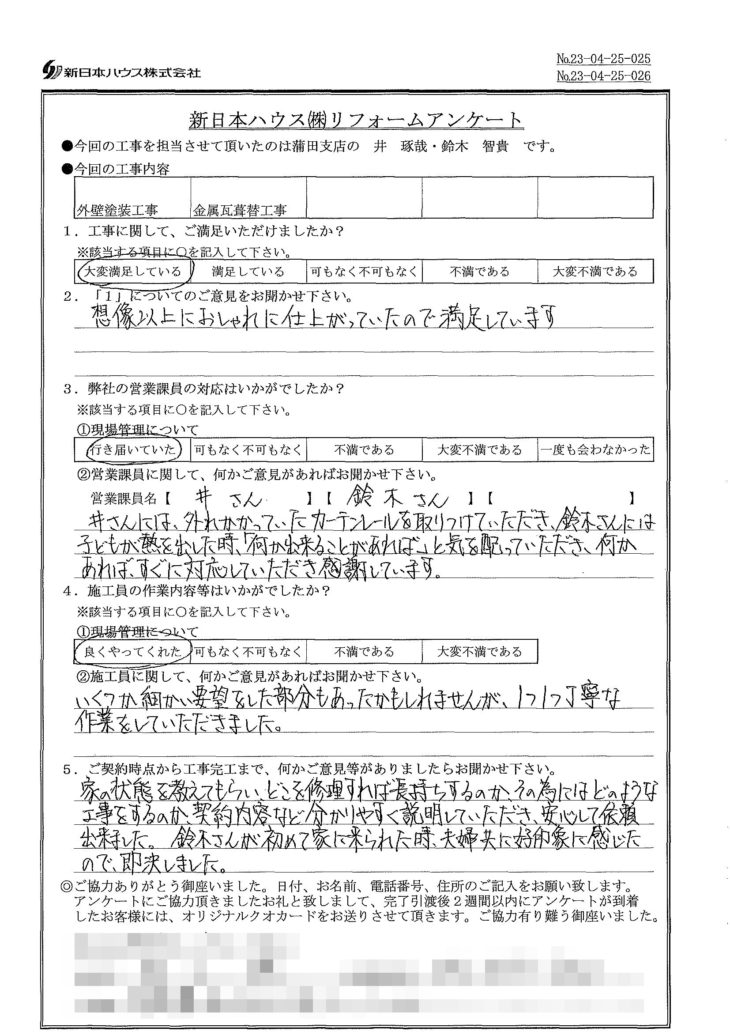 新日本ハウス株式会社
№23-04-25-025
№23-04-25-026
新日本ハウス㈱リフォームアンケート
●今回の工事を担当させて頂いたのは蒲田支店の 井 琢哉・鈴木 智貴 です。
●今回の工事内容
外壁塗装工事 金属瓦葺替工事
1．工事に関して、ご満足いただけましたか？
※該当する項目に○を記入して下さい。
大変満足している 満足している 可もなく不可もなく 不満である 大変不満である
2．「1」についてのご意見をお聞かせ下さい。
想像以上におしゃれに仕上がっていたので満足しています
3．弊社の営業課員の対応はいかがでしたか？
※該当する項目に○を記入して下さい。
①現場管理について
行き届いていた 可もなく不可もなく 不満である 大変不満である 一度も会わなかった
②営業課員に関して、何かご意見があればお聞かせ下さい。
営業課員名【 井 さん 】【 鈴木 さん 】【 】
井さんには、外れかかっていたカーテンレールを取りつけていただき、鈴木さんには
子どもが熱を出した時、「何か出来ることがあれば」と気を配っていただき、何か
あれば、すぐに対応していただき感謝しています。
4．施工員の作業内容等はいかがでしたか？
※該当する項目に○を記入して下さい。
①現場管理について
良くやってくれた 可もなく不可もなく 不満である 大変不満である
②施工員に関して、何かご意見があればお聞かせ下さい。
いくつか細かい要望をした部分もあったかもしれませんが、1つ1つ丁寧な
作業をしていただきました。
5．ご契約時点から工事完工まで、何かご意見等がありましたらお聞かせ下さい。
家の状態を教えてもらい、どこを修理すれば長持ちするのか、その為にはどのような
工事をするのか、契約内容など分かりやすく説明していただき、安心して依頼
出来ました。 鈴木さんが初めて家に来られた時、夫婦共に好印象に感じた
ので、即決しました。
◎ご協力ありがとう御座いました。日付、お名前、電話番号、住所のご記入をお願い致します。
アンケートにご協力頂きましたお礼と致しまして、完了引渡後2週間以内にアンケートが到着
したお客様には、オリジナルクオカードをお送りさせて頂きます。ご協力有り難う御座いました。